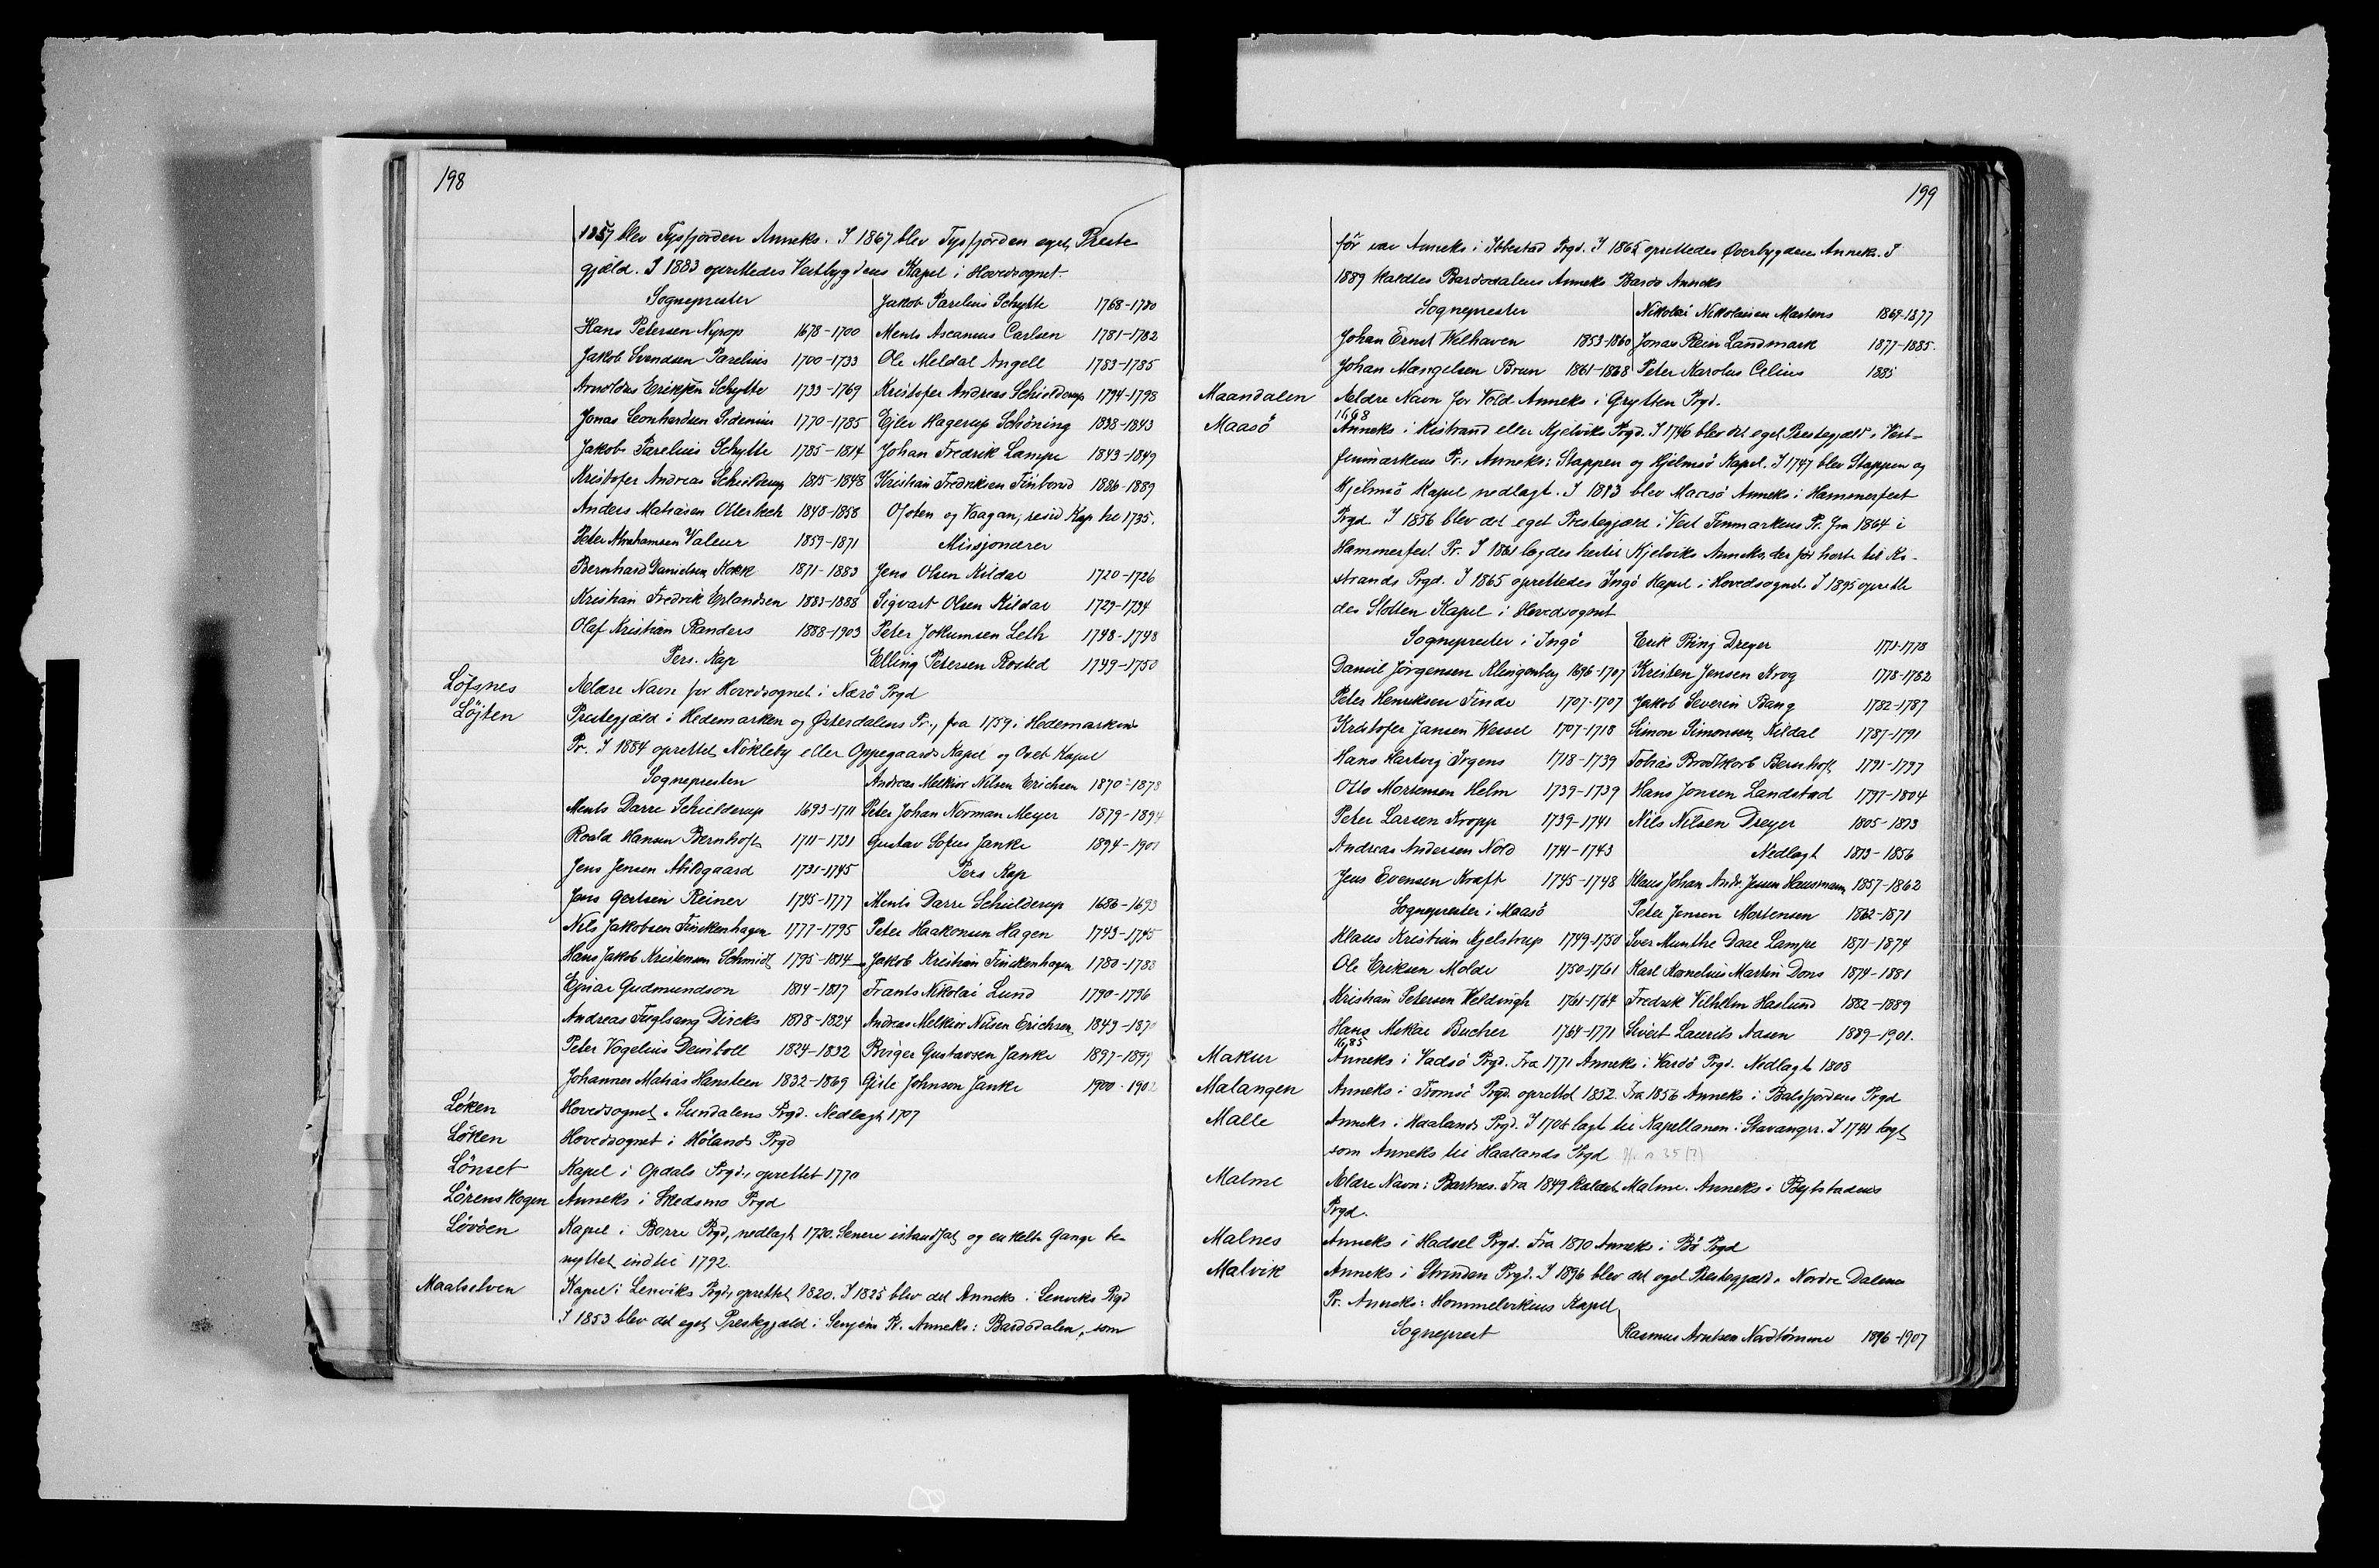 198
1857 blev Tysfjorden Anneks. I 1867 blev Tysfjorden eget Preste-
gjæld. I 1883 oprettedes Vestbygdens Kapel i Hovedsognet.
Sogneprester
Hans Petersen Nyrop 1678-1700
Jakob Svendsen Parelius 1700-1733
Arnoldus Eriksen Schytte 1733-1769
Jonas Leonhardsen Sidenius 1770-1785
Jakob Parelius Schytte 1785-1814
Kristofer Andreas Schielderup 1815-1848
Anders Matiasen Otterbech 1848-1858
Peter Abrahamsen Valeur 1859-1871
Bernhard Danielsen Kokk 1871-1883
Kristian Fredrik Erlandsen 1883-1888
Olaf Kristian Randers 1888-1903
Pers. Kap
Jakob Parelius Schytte 1768-1780
Ments Ascanius Carlsen 1781-1782
Ole Meldal Angell 1783-1785
Kristofer Andreas Schielderup 1794-1798
Ejler Hagerup Schöning 1838-1843
Johan Fredrik Lampe 1843-1849
Kristian Fredriksen Finborud 1886-1889
Ofoten og Vaagan, resid Kap he 1735.
Missjonærer
Jens Olsen Kildal 1720-1726
Sigvart Olsen Kildal 1729-1734
Peter Jokumsen Leth 1748-1748
Elling Petersen Rosted 1749-1750
Löfsnes Ældre Navn for Hovedsognet i Nærö Prgd
Löjten Prestegjæld i Hedemarken og Østerdalens Pr., fra 1759 i Hedemarkens
Pr. I 1884 oprettet Nökleby eller Oppegaards Kapel og Oset Kapel
Sogneprester
Ments Darre Schielderup 1693-1711
Roald Hansen Bernhoft 1711-1731
Jens Jensen Abildgaard 1731-1745
Jens Gertsen Reiner 1745-1777
Nils Jakobsen Finckenhagen 1777-1795
Hans Jakob Kristensen Schmidt 1795-1814
Ejnar Gudmundson 1814-1817
Andreas Fuglsang Dircks 1818-1824
Peter Vogelius Deinboll 1824-1832
Johannes Matias Hansteen 1832-1869
Andreas Melkior Nilsen Erichsen 1870-1878
Peter Johan Norman Meyer 1879-1894
Gustav Sofus Janke 1894-1901
Pers Kap
Ments Darre Schielderup 1686-1693
Peter Haakonsen Hagen 1743-1745
Jakob Kristian Finckenhagen 1780-1788
Frants Nikolai Lund 1790-1796
Andreas Melkior Nilsen Erichsen 1849-1870
Birger Gustavsen Janke 1897-1899
Gisle Johnson Janke 1900-1902
Löken Hovedsognet i Sundalens Prgd. Nedlagt 1707
Löken Hovedsognet i Hölands Prgd
Lönset Kapel i Opdals Prgd., oprettet 1770
Lörenskogen Anneks i Skedsmo Prgd
Lövöen Kapel i Borre Prgd, nedlagt 1720. Senere istandsat og enkelte Gange be-
nyttet indtil 1792.
Maalselven Kapel i Lenviks Prgd, oprettet 1820. I 1825 blev det Anneks i Lenviks Prgd
I 1853 blev det eget Prestegjæld i Senjens Pr. Anneks: Bardodalen, som
199
för var Anneks i Ibbestad Prgd. I 1865 oprettedes Øverbygden Anneks. I
1889 kaldtes Bardodalens Anneks Bardo Anneks
Sogneprester
Johan Ernst Welhaven 1853-1860
Johan Mangelsen Brun 1861-1868
Nikolai Nikolaisen Martens 1869-1877
Jonas Rein Landmark 1877-1885.
Peter Karolus Celius 1885
Maandalen Ældre Navn for Vold Anneks i Grytten Prgd.
1668
Maasö Anneks i Kistrand eller Kjelviks Prgd. I 1746 blev det eget Prestegjæld i Vest-
finmarkens Pr., Anneks: Stappen og Hjelmsö Kapel. I 1747 blev Stappen og
Hjelmsö Kapel nedlagt. I 1813 blev Maasö Anneks i Hammerfest
Prgd. I 1856 blev det eget Prestegjæld i Vest Finmarkens Pr. fra 1864 i
Hammerfest Pr. I 1861 lagdes hertil Kjelviks Anneks, der för hörte til Ki-
strands Prgd. I 1865 oprettedes Ingö Kapel i Hovedsognet. I 1895 oprette-
des Slotten Kapel i Hovedsognet
Sogneprester i Ingö
Daniel Jörgensen Klingenberg 1696-1707
Peter Henriksen Finde 1707-1707
Kristofer Jansen Wessel 1707-1718
Hans Hartvig Irgens 1718-1739
Otto Mortensen Helm 1739-1739
Peter Larsen Kropp 1739-1741
Andreas Andersen Nold 1741-1743
Jens Evensen Kraft 1745-1748
Sogneprester i Maasö
Klaus Kristian Kjelstrup 1749-1750
Ole Eriksen Molde 1750-1761
Kristian Petersen Weldingh 1761-1764
Hans Mikkal Bucher 1764-1771
Erik Bing Dreyer 1771-1778
Kristen Jensen Krog 1778-1782
Jakob Severin Bang 1782-1787
Simon Simonsen Kildal 1787-1791
Tobias Brodtkorb Bernhoft 1791-1797
Hans Jonsen Landstad 1797-1804
Nils Nilsen Dreyer 1805-1813
Nedlagt 1813-1856
Klaus Johan Andr. Jessen Hausmann 1857-1862
Peter Jensen Mortensen 1862-1871
Iver Munthe Daae Lampe 1871-1874
Karl Kornelius Martin Dons 1874-1881
Fredrik Vilhelm Haslund 1882-1889
Sivert Laurits Aasen 1889-1901.
1685
Makur Anneks i Vadsö Prgd. Fra 1771 Anneks i Vardö Prgd. Nedlagt 1808
Malangen Anneks i Tromsö Prgd. oprettet 1852. Fra 1856 Anneks i Balsfjordens Prgd
Malle Anneks i Haalands Prgd. I 1706 lagt til Kapellanen i Stavanger. I 1741 lagt
som Anneks til Haalands Prgd
Malme Ældre Navn: Bartnes. Fra 1849 kaldet Malme. Anneks i Bejtstadens
Prgd.
Malnes Anneks i Hadsel Prgd. Fra 1810 Anneks i Bö Prgd
Malvik Anneks i Strinden Prgd. I 1896 blev det eget Prestegjæld i Nordre Dalenes
Pr. Anneks: Hommelvikens Kapel
Sogneprest Rasmus Arntsen Nordtömme 1896-1907